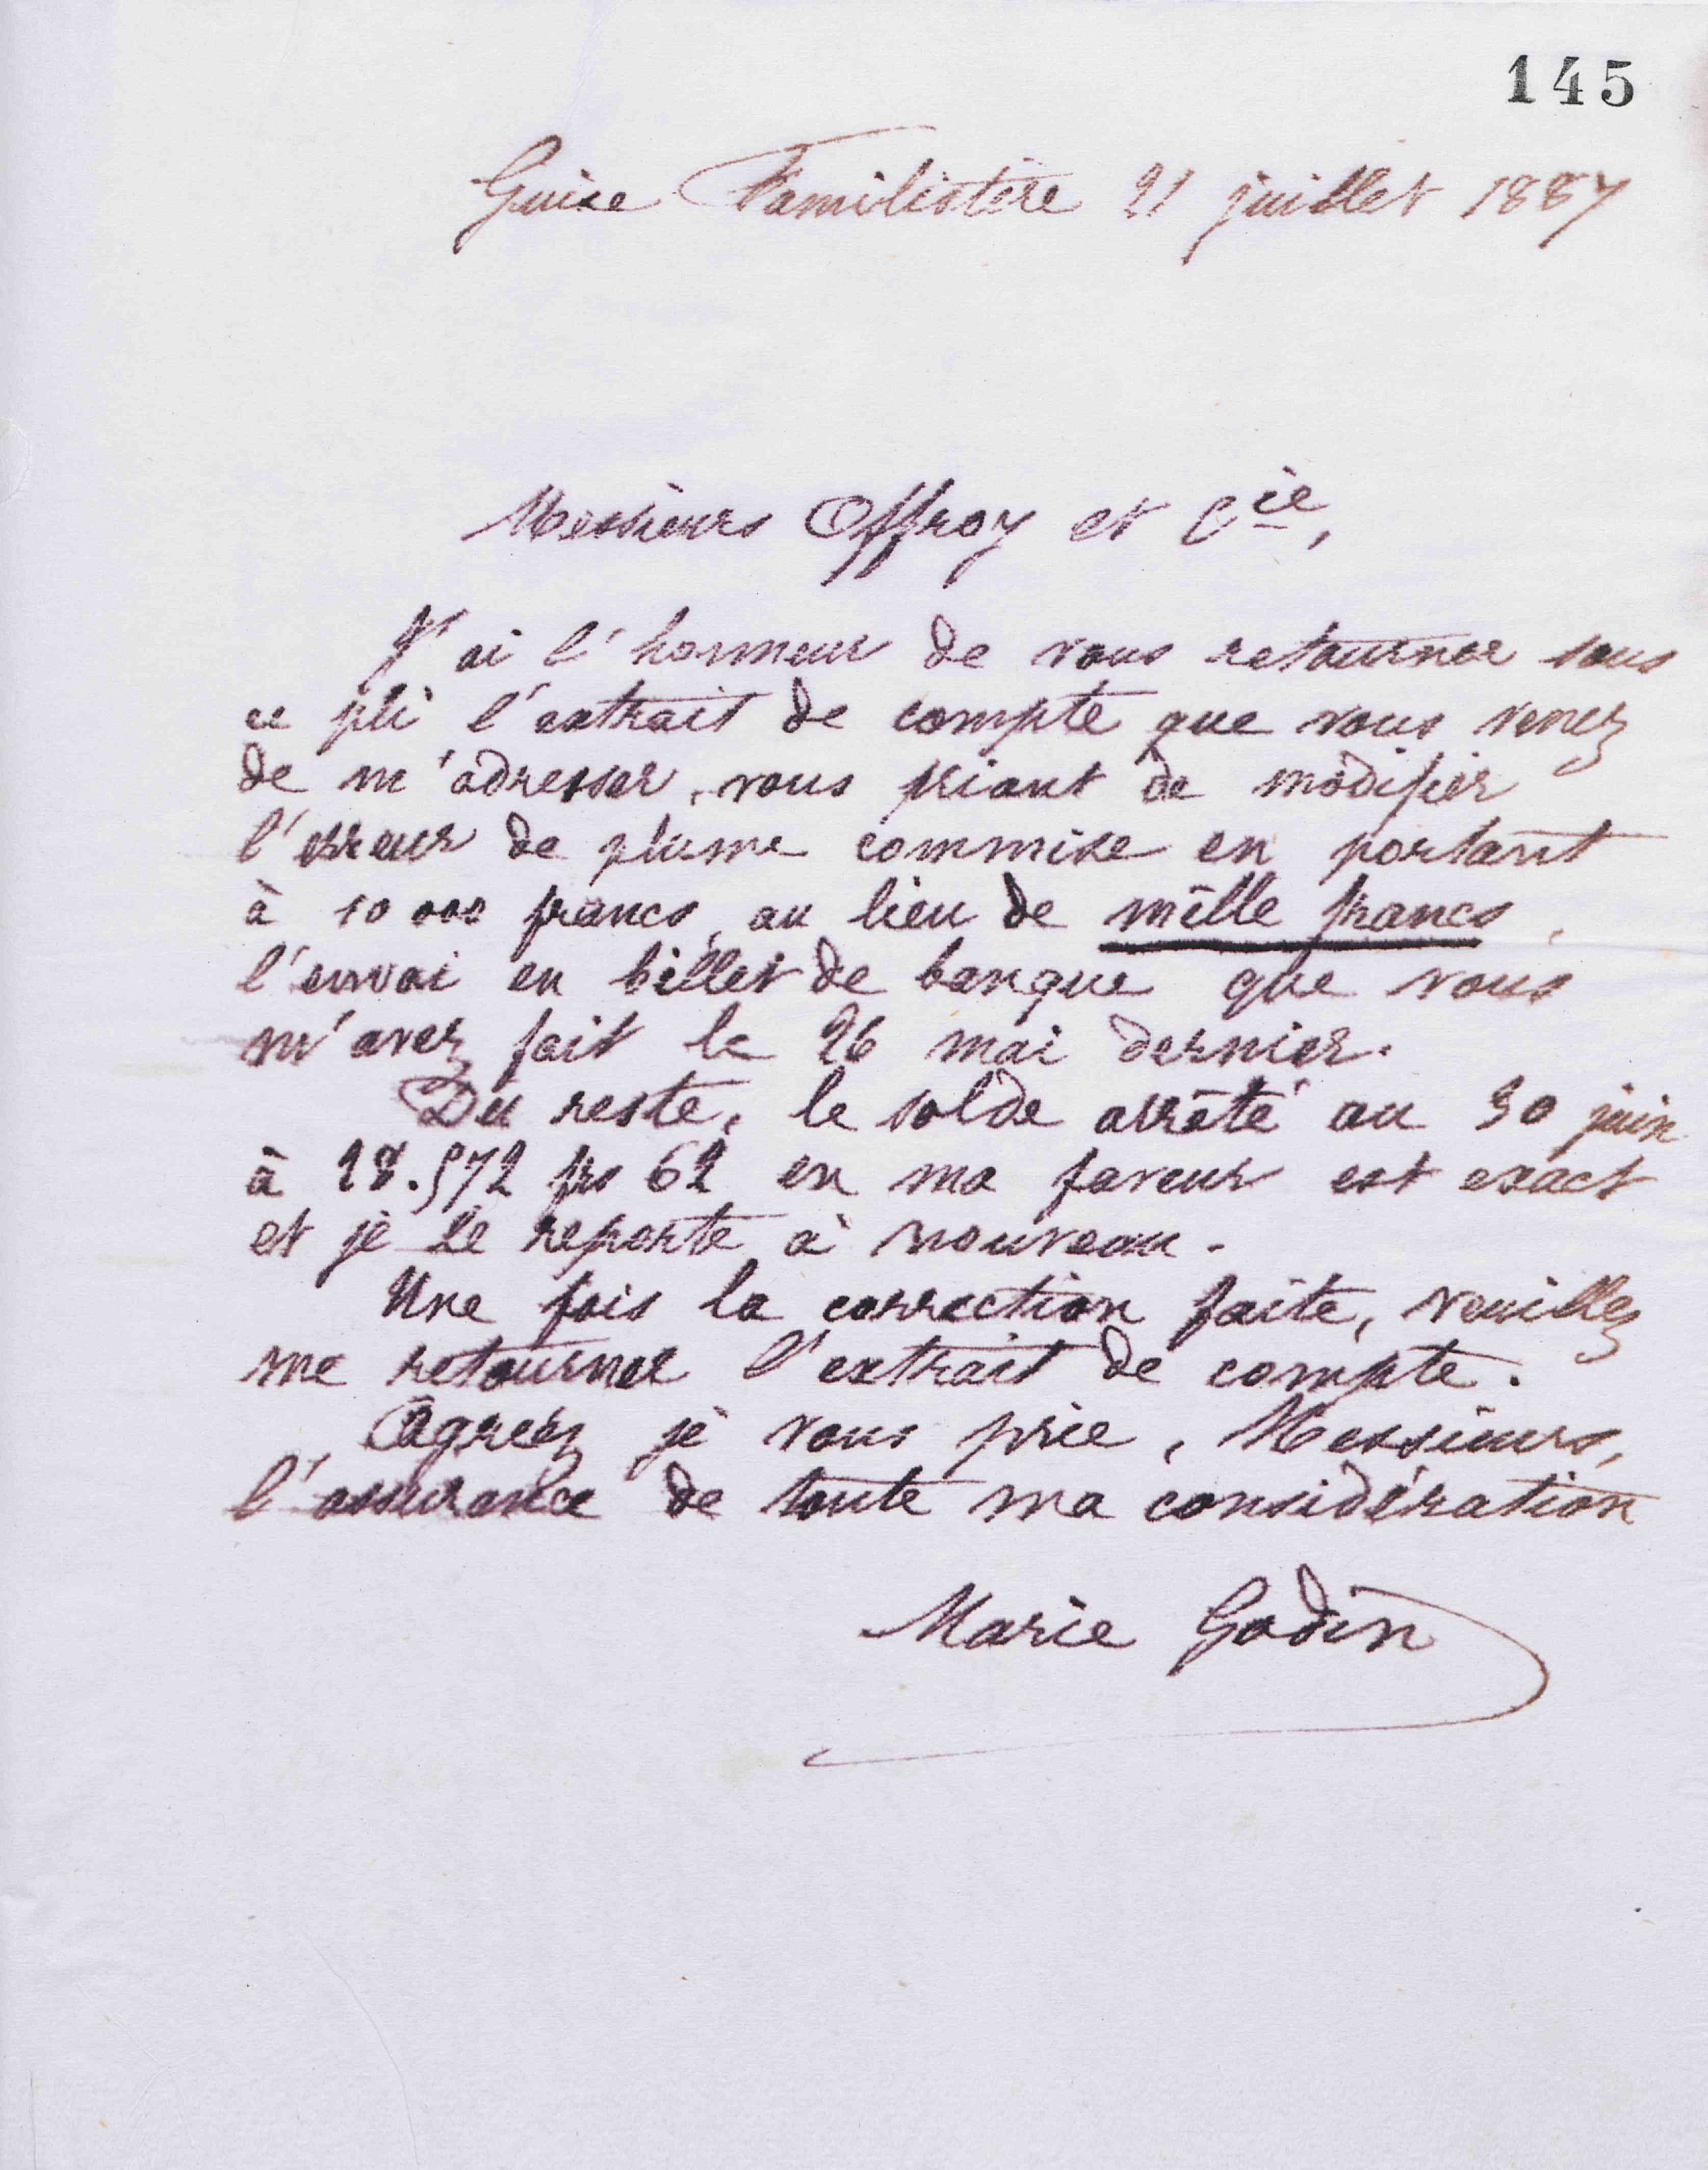 145
Guise Familistère 21 juillet 1887
Messieurs Offroy et Cie,
J'ai l'honneur de vous retourner sous
ce pli l'extrait de compte que vous venez
de m'adresser, vous priant de modifier
l'erreur de plume commise en portant
à 10 000 francs, au lieu de mille francs,
l'envoi en billet de banque que vous
m'avez fait le 26 mai dernier.
Du reste, le solde arrêté au 30 juin
à 28.572 frs 62 en ma faveur est exact
et je le reporte à nouveau.
Une fois la correction faite, veuillez
me retourner l'extrait de compte.
Agréez je vous prie, Messieurs,
l'assurance de toute ma considération
Marie Godin